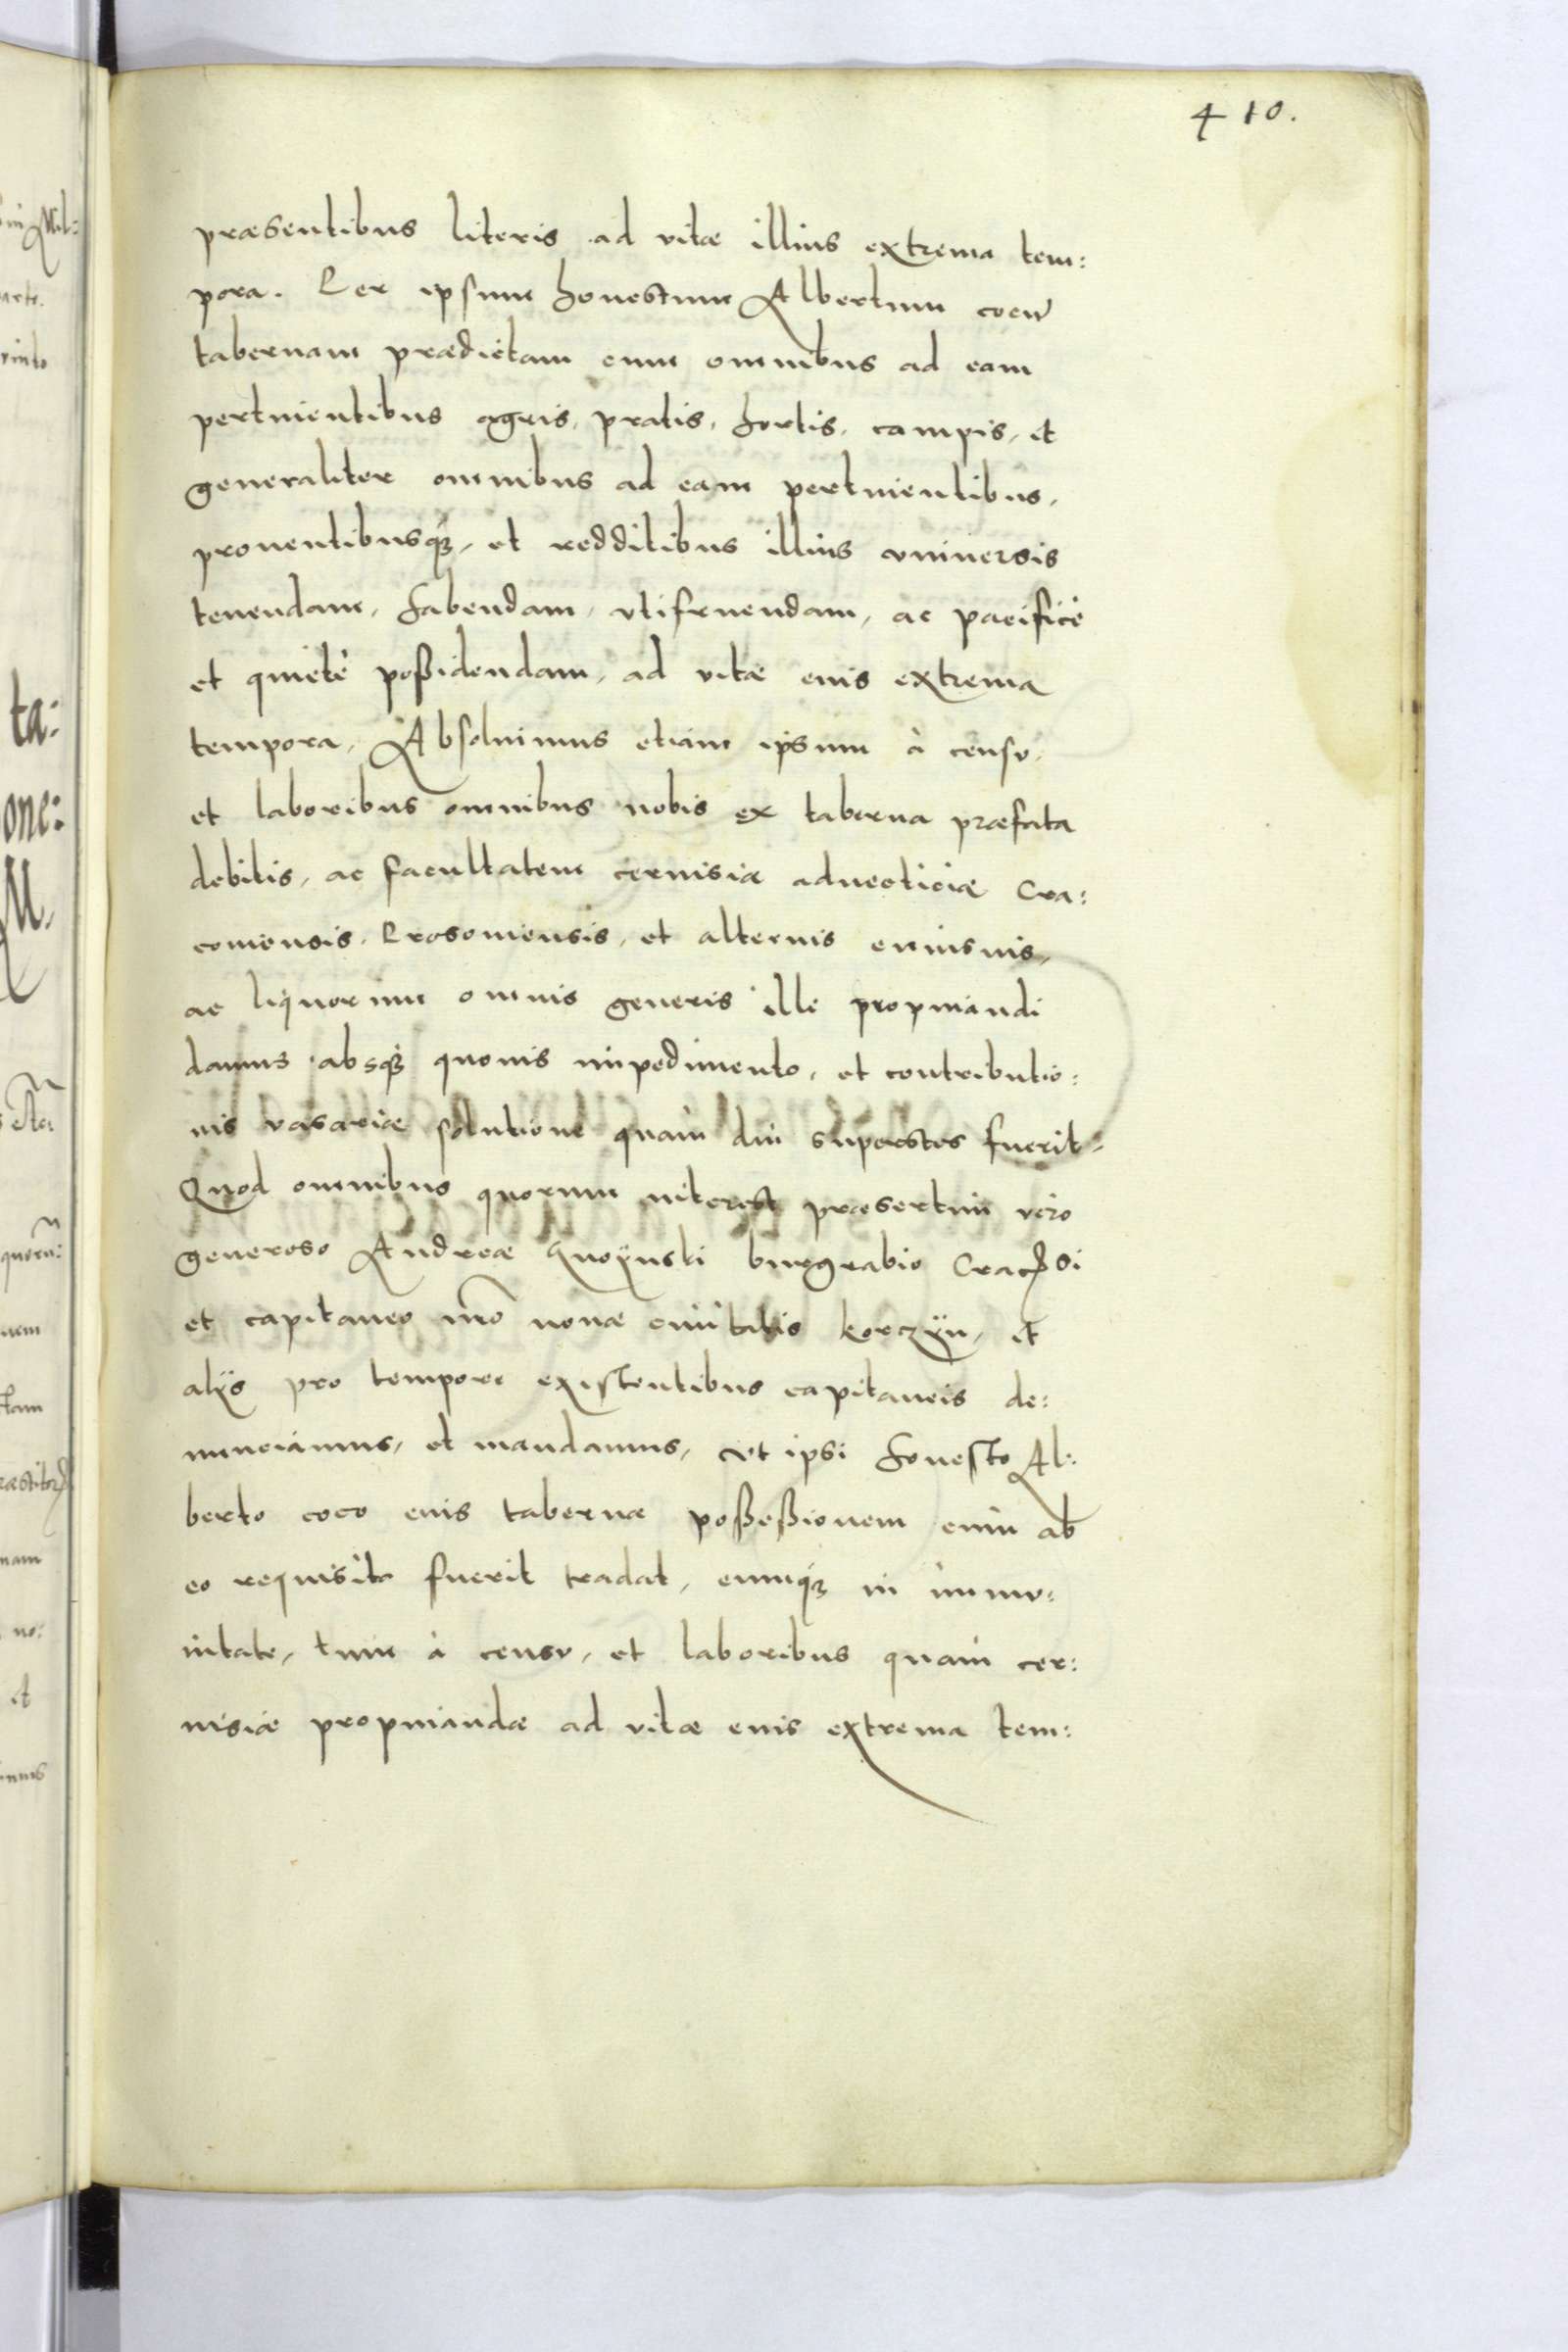 410.
præsentibus literis ad vitæ illius extrema tem:
pora. Per ipsum honestum Albertum cocu
tabernam prædictam cum omnibus ad eam
pertinentibus agris, pratis, hortis, campis, et
generaliter omnibus ad eam pertinentibus,
prouentibusq₃, et redditibus illius vniuersis
tenendam, habendam, vtifruendam, ac pacificè
et quietè poßidendam, ad vitæ euis extrema
tempora, Absoluimus etiam ipsum à censu,
et laboribus omnibus nobis ex taberna præfata
debitis, ac facultatem ceruisiæ aduecticiæ Cra:
couiensis, Prosouiensis, et alterius cuiusuis,
ac liquorum omnis generis illi propinandi
damus absq₃ quouis impedimento, et contributio:
nis vasariæ solutione quam diu superstes fuerit,
Quod omnibus quorum interest præsertim vero
generoso Andreæ burgrabio
et capitaneo nro nouæ ciuitatis korczÿn, et
alÿs pro tempore existentibus capitaneis de:
nunciamus, et mandamus, vt ipsi honesto Al:
berto coco euis tabernæ poßeßionem cum ab
eo requisito fuerit tradat, eumq₃ in immu:
nitate, tum à censu, et laboribus quam cer:
uisiæ propinandæ ad vitæ euis extrema tem: